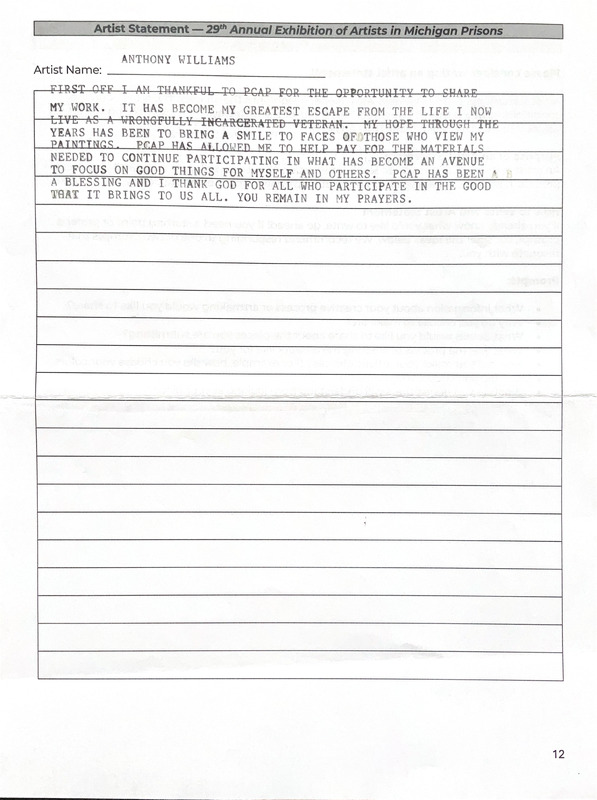 Artist Statement — 29th Annual Exhibition of Artists in Michigan Prisons
ANTHONY WILLIAMS
Artist Name:
FIRST OFF I AM THANKFUL TO PCAP FOR THE OPPORTUNITY TO SHARE
MY WORK. IT HAS BECOME MY GREATEST ESCAPE FROM THE LIFE I NOW
LIVE AS A WRONGFULLY INCARCERATED VETERAN. MY HOPE THROUGH THE
YEARS HAS BEEN TO BRING A SMILE TO FACES OF THOSE WHO VIEW MY
PAINTINGS. PCAP HAS ALLOWED ME TO HELP PAY FOR THE MATERIALS
NEEDED TO CONTINUE PARTICIPATING IN WHAT HAS BECOME AN AVENUE
TO FOCUS ON GOOD THINGS FOR MYSELF AND OTHERS. PCAP HAS BEEN A B
A BLESSING AND I THANK GOD FOR ALL WHO PARTICIPATE IN THE GOOD
THAT IT BRINGS TO US ALL. YOU REMAIN IN MY PRAYERS.
12